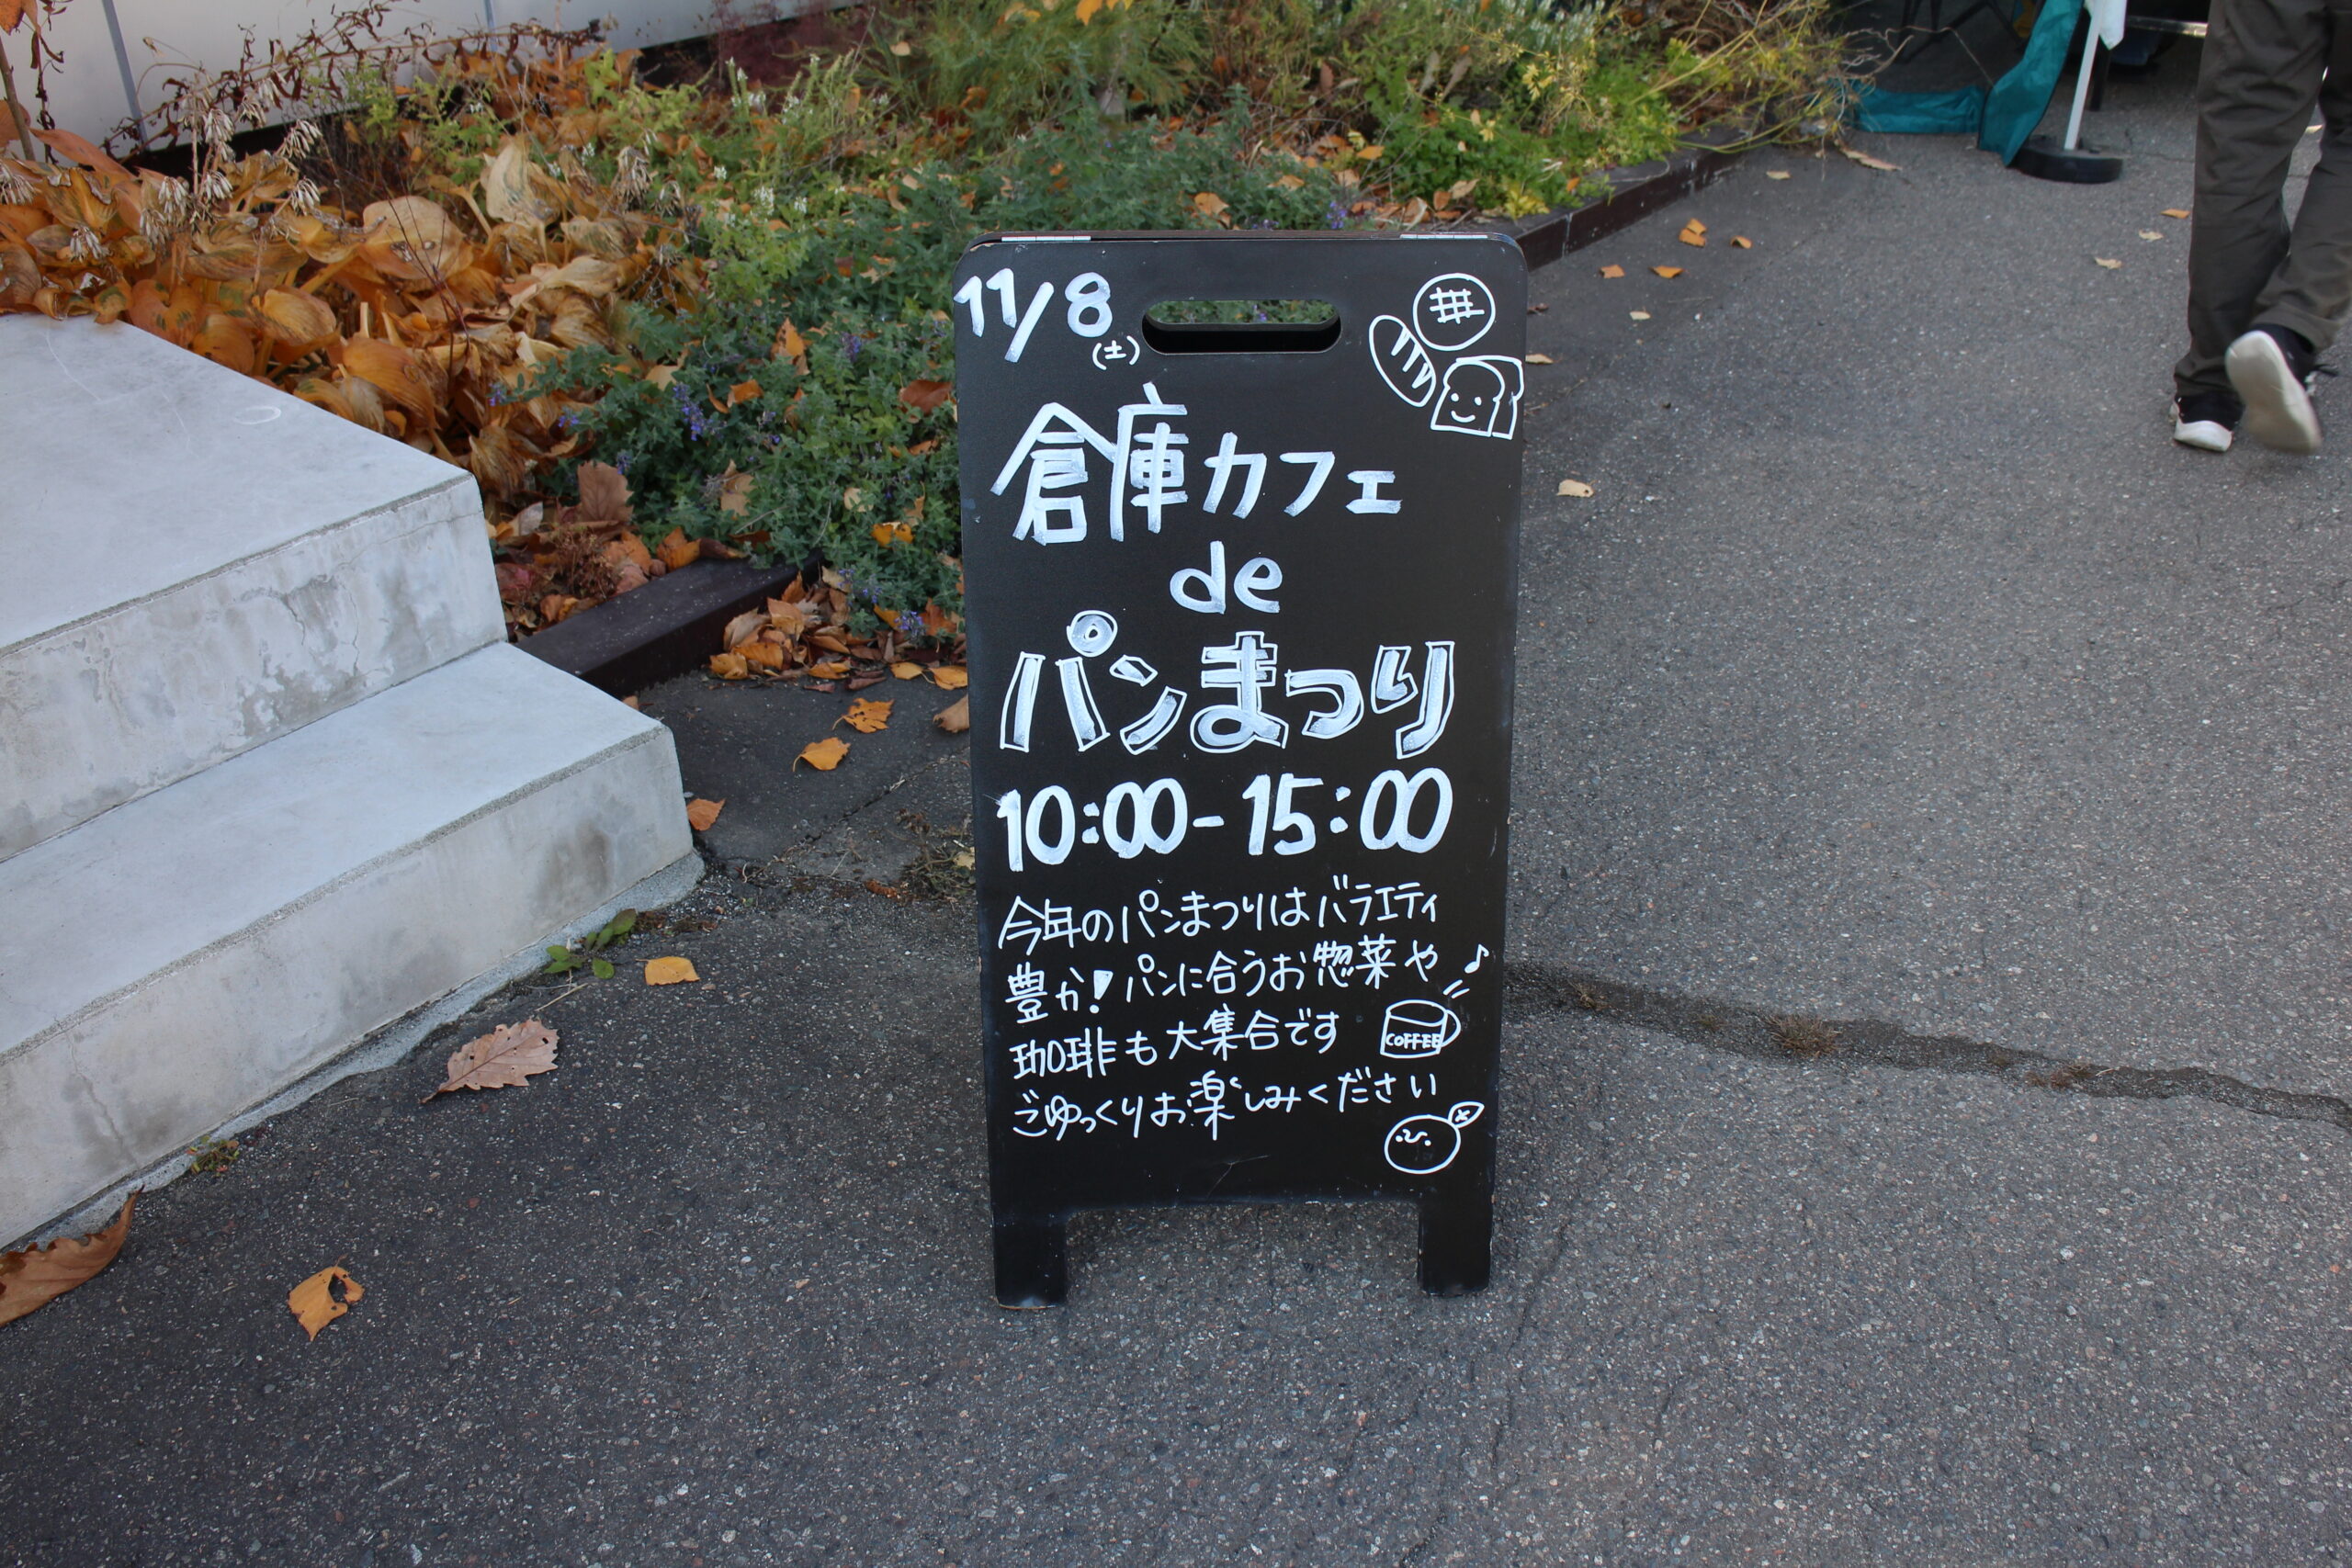 11/8
(土)
倉庫カフェ
de
パンまつり
10:00-15:00
今年のパンまつりはバラエティ
豊か！パンに合うお惣菜や
珈琲も大集合です
COFFEE
ごゆっくりお楽しみください